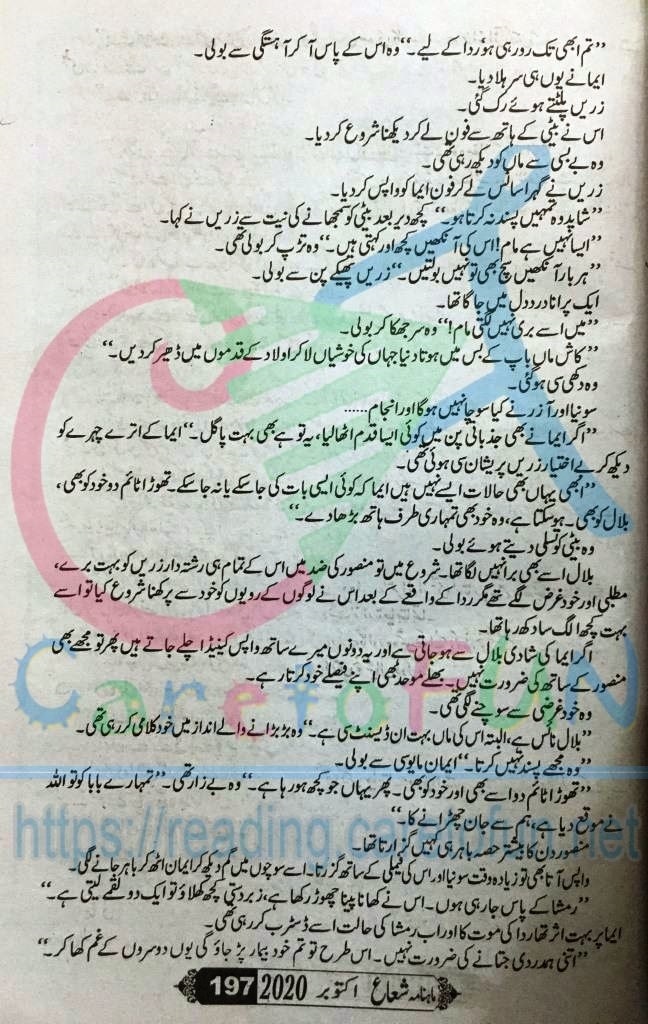 ”تم ابھی تک رو رہی ہو ردا کے لیے۔“ وہ اس کے پاس آ کر آہستگی سے بولی۔
ایما نے یوں ہی سر ہلا دیا۔
زریں پلٹتے ہوئے رک گئی۔
اس نے بیٹی کے ہاتھ سے فون لے کر دیکھنا شروع کر دیا۔
وہ بے بسی سے ماں کو دیکھ رہی تھی۔
زریں نے گہرا سانس لے کر فون ایما کو واپس کر دیا۔
”شاید وہ تمہیں پسند نہ کرتا ہو۔“ کچھ دیر بعد بیٹی کو سمجھانے کی نیت سے زریں نے کہا۔
”ایسا نہیں ہے مام! اس کی آنکھیں کچھ اور کہتی ہیں۔“ وہ تڑپ کر بولی تھی۔
”ہر بار آنکھیں سچ بھی تو نہیں بولتیں۔“ زریں پھیکے پن سے بولی۔
ایک پرانا درد دل میں جاگا تھا۔
”میں اسے بری نہیں لگتی مام!“ وہ سر جھکا کر بولی۔
”کاش ماں باپ کے بس میں ہوتا دنیا جہاں کی خوشیاں لا کر اولاد کے قدموں میں ڈھیر کر دیں۔“
وہ دکھی سی ہو گئی۔
سونیا اور آزر نے کیا سوچا نہیں ہوگا اور انجام......
”اگر ایما نے بھی جذباتی پن میں کوئی ایسا قدم اٹھا لیا، یہ تو ہے بھی بہت پاگل۔“ ایما کے اترے چہرے کو
دیکھ کر بے اختیار زریں پریشان سی ہوئی تھی۔
”ابھی یہاں بھی حالات ایسے نہیں ہیں ایما کہ کوئی ایسی بات کی جا سکے یا نہ جا سکے۔ تھوڑا ٹائم دو خود کو بھی،
بلال کو بھی۔ ہو سکتا ہے، وہ خود بھی تمہاری طرف ہاتھ بڑھا دے۔“
وہ بیٹی کو تسلی دیتے ہوئے بولی۔
بلال اسے بھی برا نہیں لگا تھا۔ شروع میں تو منصور کی ضد میں اس کے تمام ہی رشتہ دار زریں کو بہت برے،
مطلبی اور خود غرض لگے تھے مگر ردا کے واقعے کے بعد اس نے لوگوں کے رویوں کو خود سے پرکھنا شروع کیا تو اسے
بہت کچھ الگ سا دکھ رہا تھا۔
اگر ایما کی شادی بلال سے ہو جاتی ہے اور یہ دونوں میرے ساتھ واپس کینیڈا چلے جاتے ہیں پھر تو مجھے بھی
منصور کے ساتھ کی ضرورت نہیں۔ بھلے موحد بھی اپنے فیصلے خود کرتا رہے۔
وہ خود غرضی سے سوچنے لگی تھی۔
”بلال نائس ہے، البتہ اس کی ماں بہت ان ڈیسنٹ سی ہے۔“ وہ بڑبڑانے والے انداز میں خود کلامی کر رہی تھی۔
”وہ مجھے پسند نہیں کرتا۔“ ایمان مایوسی سے بولی۔
”تھوڑا ٹائم دو اسے بھی اور خود کو بھی۔ پھر یہاں جو کچھ ہو رہا ہے۔“ وہ بے زار تھی۔ ”تمہارے بابا کو تو اللہ
نے موقع دیا ہے، ہم سے جان چھڑانے کا۔“
منصور دن کا بیشتر حصہ باہر ہی کہیں گزارتا تھا۔
واپس آتا بھی تو زیادہ وقت سونیا اور اس کی فیملی کے ساتھ گزرتا۔ اسے سوچوں میں گم دیکھ کر ایمان اٹھ کر باہر جانے لگی۔
”رمشا کے پاس جا رہی ہوں۔ اس نے کھانا پینا چھوڑ رکھا ہے، زبردستی کچھ کھلاؤ تو ایک دو لقمے لیتی ہے۔“
ایما پر بہت اثر تھا ردا کی موت کا اور اب رمشا کی حالت اسے ڈسٹرب کر رہی تھی۔
”اتنی ہمدردی جتانے کی ضرورت نہیں۔ اس طرح تو تم خود بیمار پڑ جاؤ گی یوں دوسروں کے غم کھا کر۔“
ماہنامہ شعاع اکتوبر 2020 197
CareforFUN
https://reading.careforfun.net